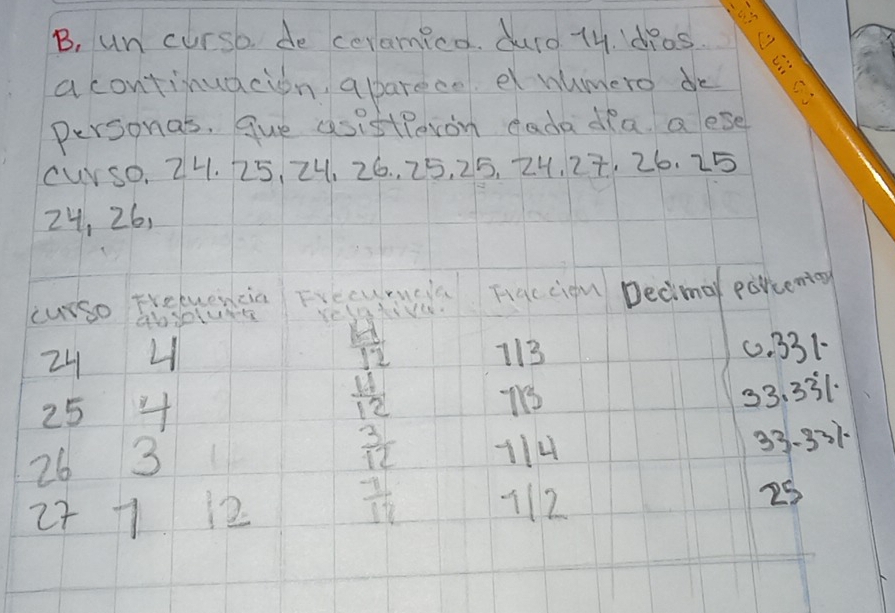 B. un curso. de ceramica. duro 14. dias.
a continuación. aparece. el numero de
personas. que asistieron cada dia. a ese
curso. 24. 25, 24, 26., 25, 25, 24, 27, 26. 25
24, 26,
curso Frecuencia absoluta Frecuencia relativa. Fracción Decimal porcentaj
24 4 4/12 1/3 0.33%
25 4 4/12 1/3 33.33%
26 3 3/12 1/4 33.33%
27 1 12 1/12 1/2 25